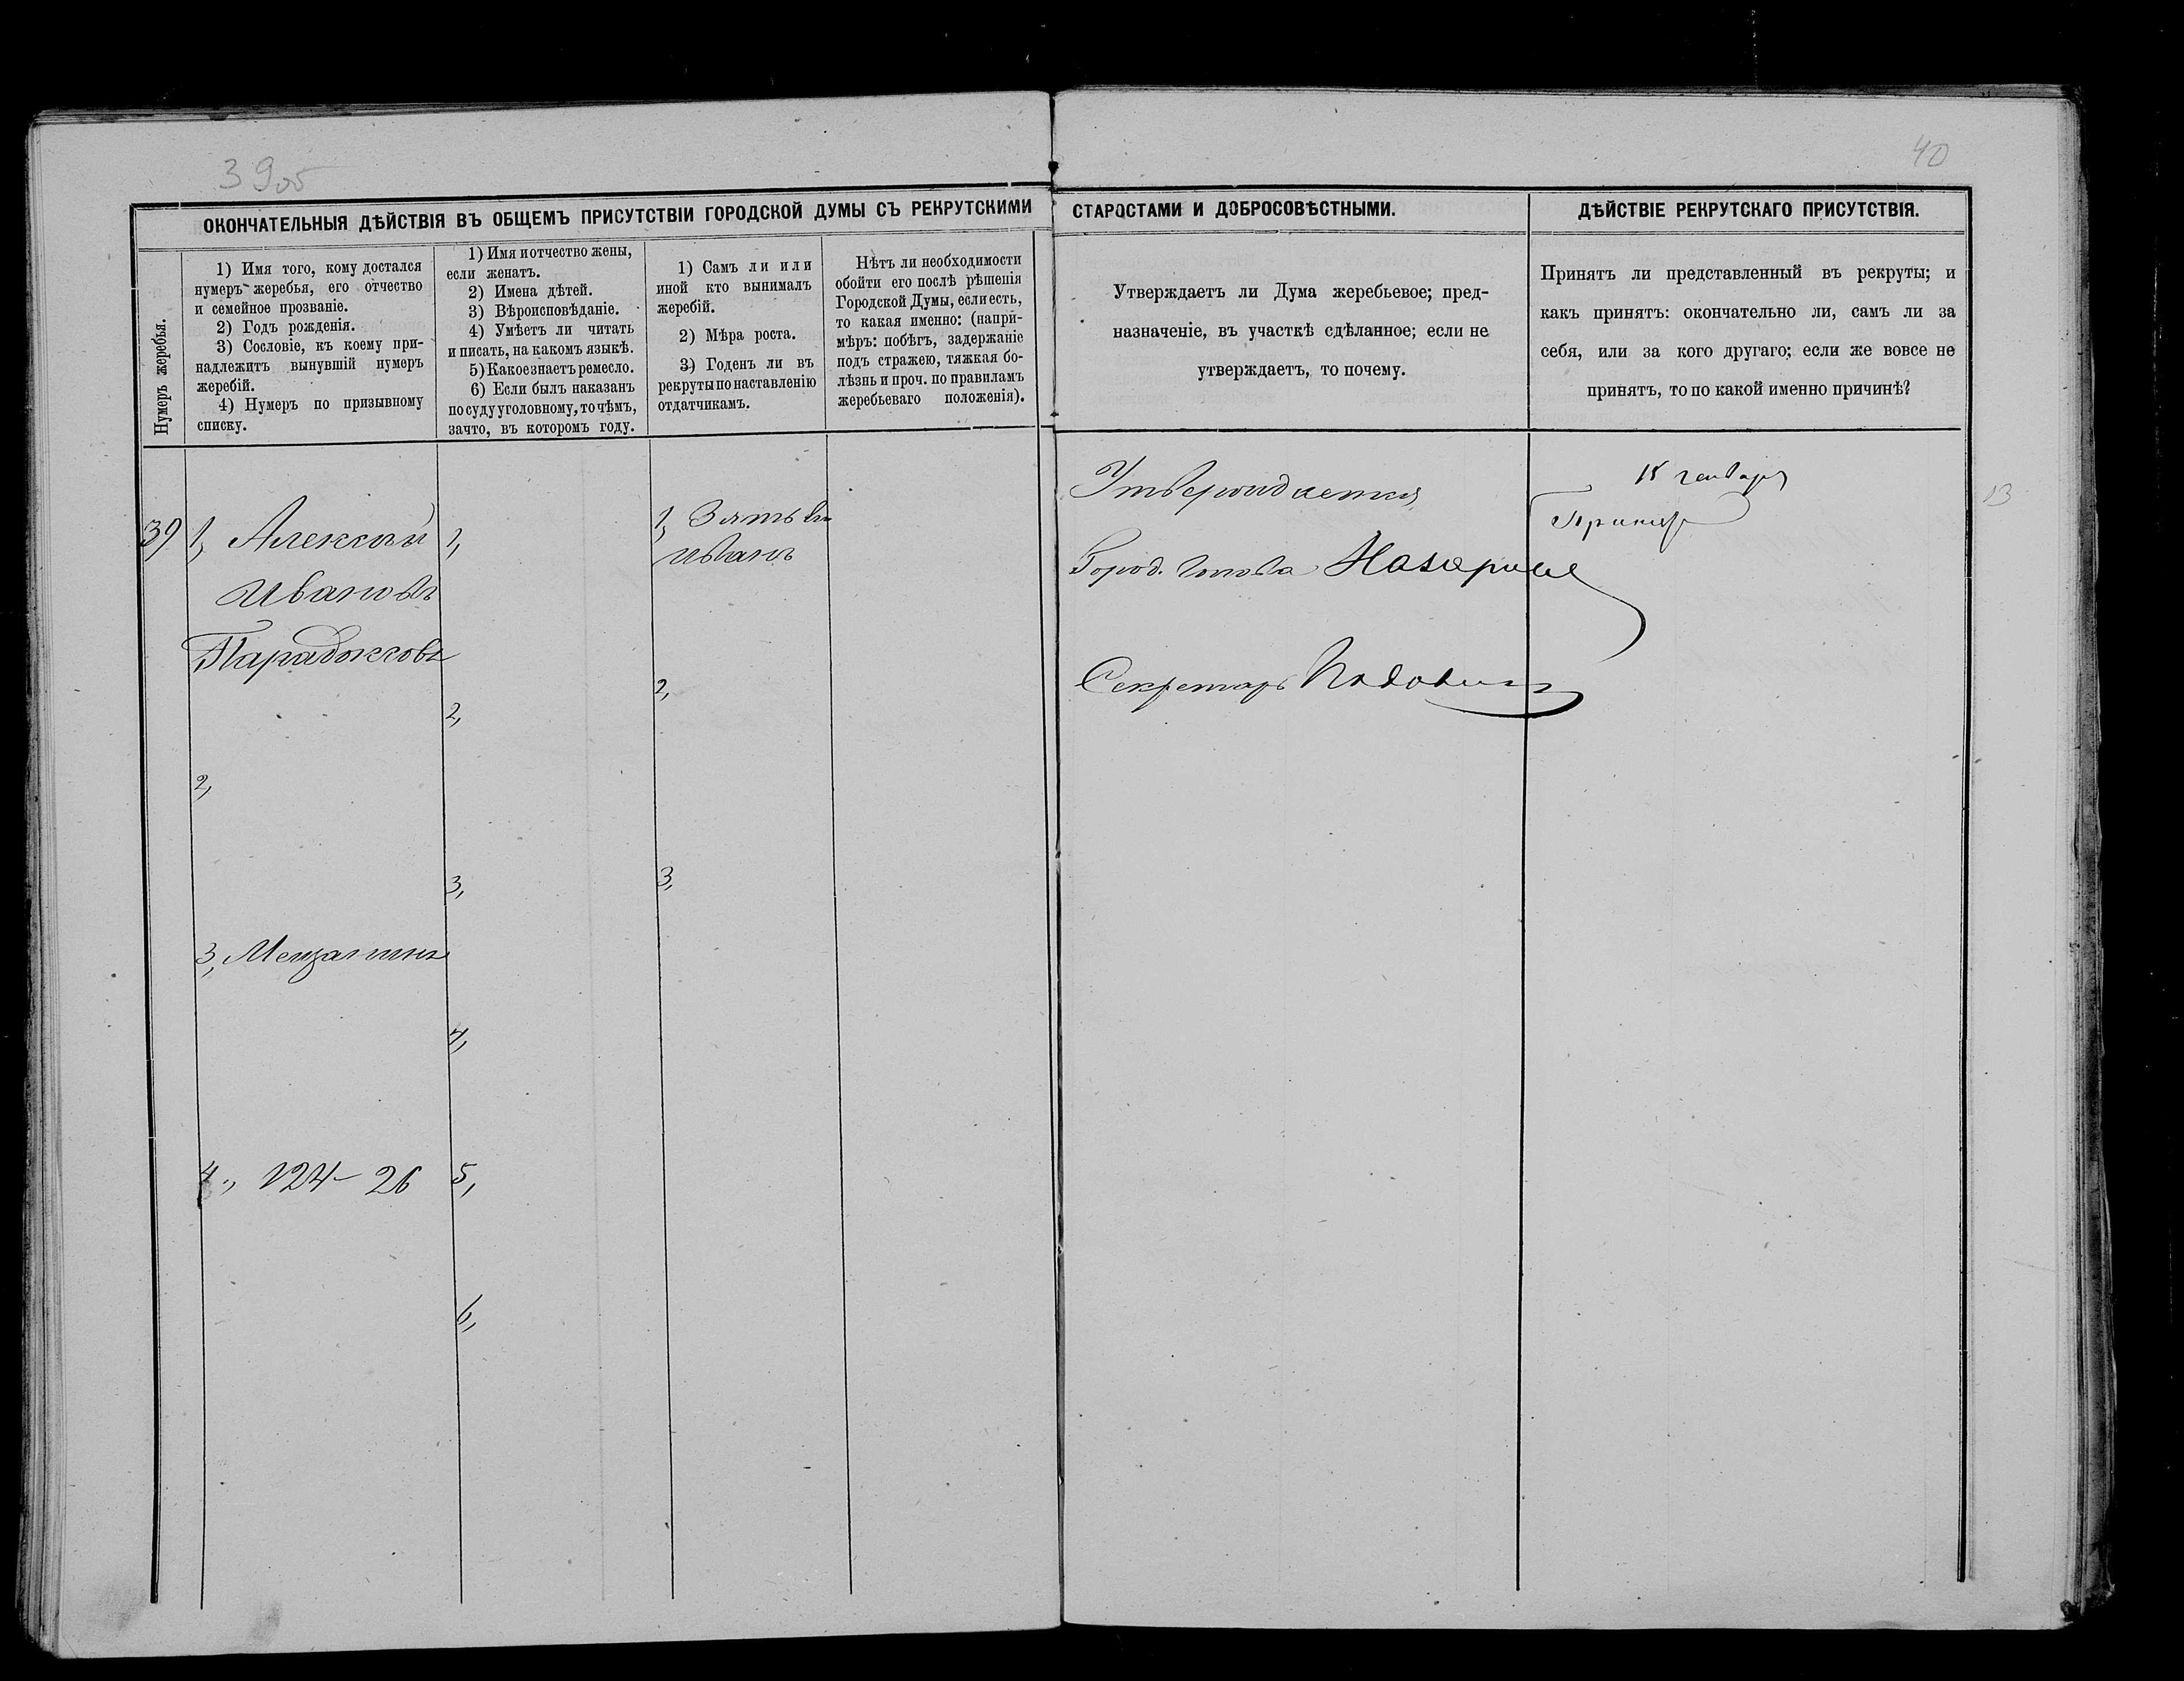 39об
40
ОКОНЧАТЕЛЬНЫЯ ДѢЙСТВІЯ ВЪ ОБЩЕМЪ ПРИСУТСТВІИ ГОРОДСКОЙ ДУМЫ СЪ РЕКРУТСКИМИ СТАРОСТАМИ И ДОБРОСОВѢСТНЫМИ.
ДѢЙСТВІЕ РЕКРУТСКАГО ПРИСУТСТВІЯ.
Нумеръ жеребья.
1) Имя того, кому достался
нумеръ жеребья, его отчество
и семейное прозваніе.
2) Годъ рожденія.
3) Сословіе, къ коему при-
надлежитъ вынувшій нумеръ
жеребій.
4) Нумеръ по призывному
списку.
1) Имя и отчество жены,
если женатъ.
2) Имена дѣтей.
3) Вѣроисповѣданіе.
4) Умѣетъ ли читать
и писать, на какомъ языкѣ.
5) Какое знаетъ ремесло.
6) Если былъ наказанъ
по суду уголовному, то чѣмъ,
за что, въ которомъ году.
1) Самъ ли или
иной кто вынималъ
жеребій.
2) Мѣра роста.
3) Годенъ ли въ
рекруты по наставленію
отдатчикамъ.
Нѣтъ ли необходимости
обойти его послѣ рѣшенія
Городской Думы, если есть,
то какая именно: (напри-
мѣръ: побѣгъ, задержаніе
подъ стражею, тяжкая бо-
лѣзнь и проч. по правиламъ
жеребьеваго положенія).
Утверждаетъ ли Дума жеребьевое; пред-
назначеніе, въ участкѣ сдѣланное; если не
утверждаетъ, то почему.
Принятъ ли представленный въ рекруты; и
какъ принятъ: окончательно ли, самъ ли за
себя, или за кого другаго; если же вовсе не
принятъ, то по какой именно причинѣ?
39
1, Алексѣй
Ивановъ
Парадоксовъ
2,
3, Мещанинъ
4., 124–26
1,
2,
3,
4,
5,
6,
1, Зять
Иванъ
2,
3,
Утверждается
Город. Голова
Секретарь
января
Принятъ
13